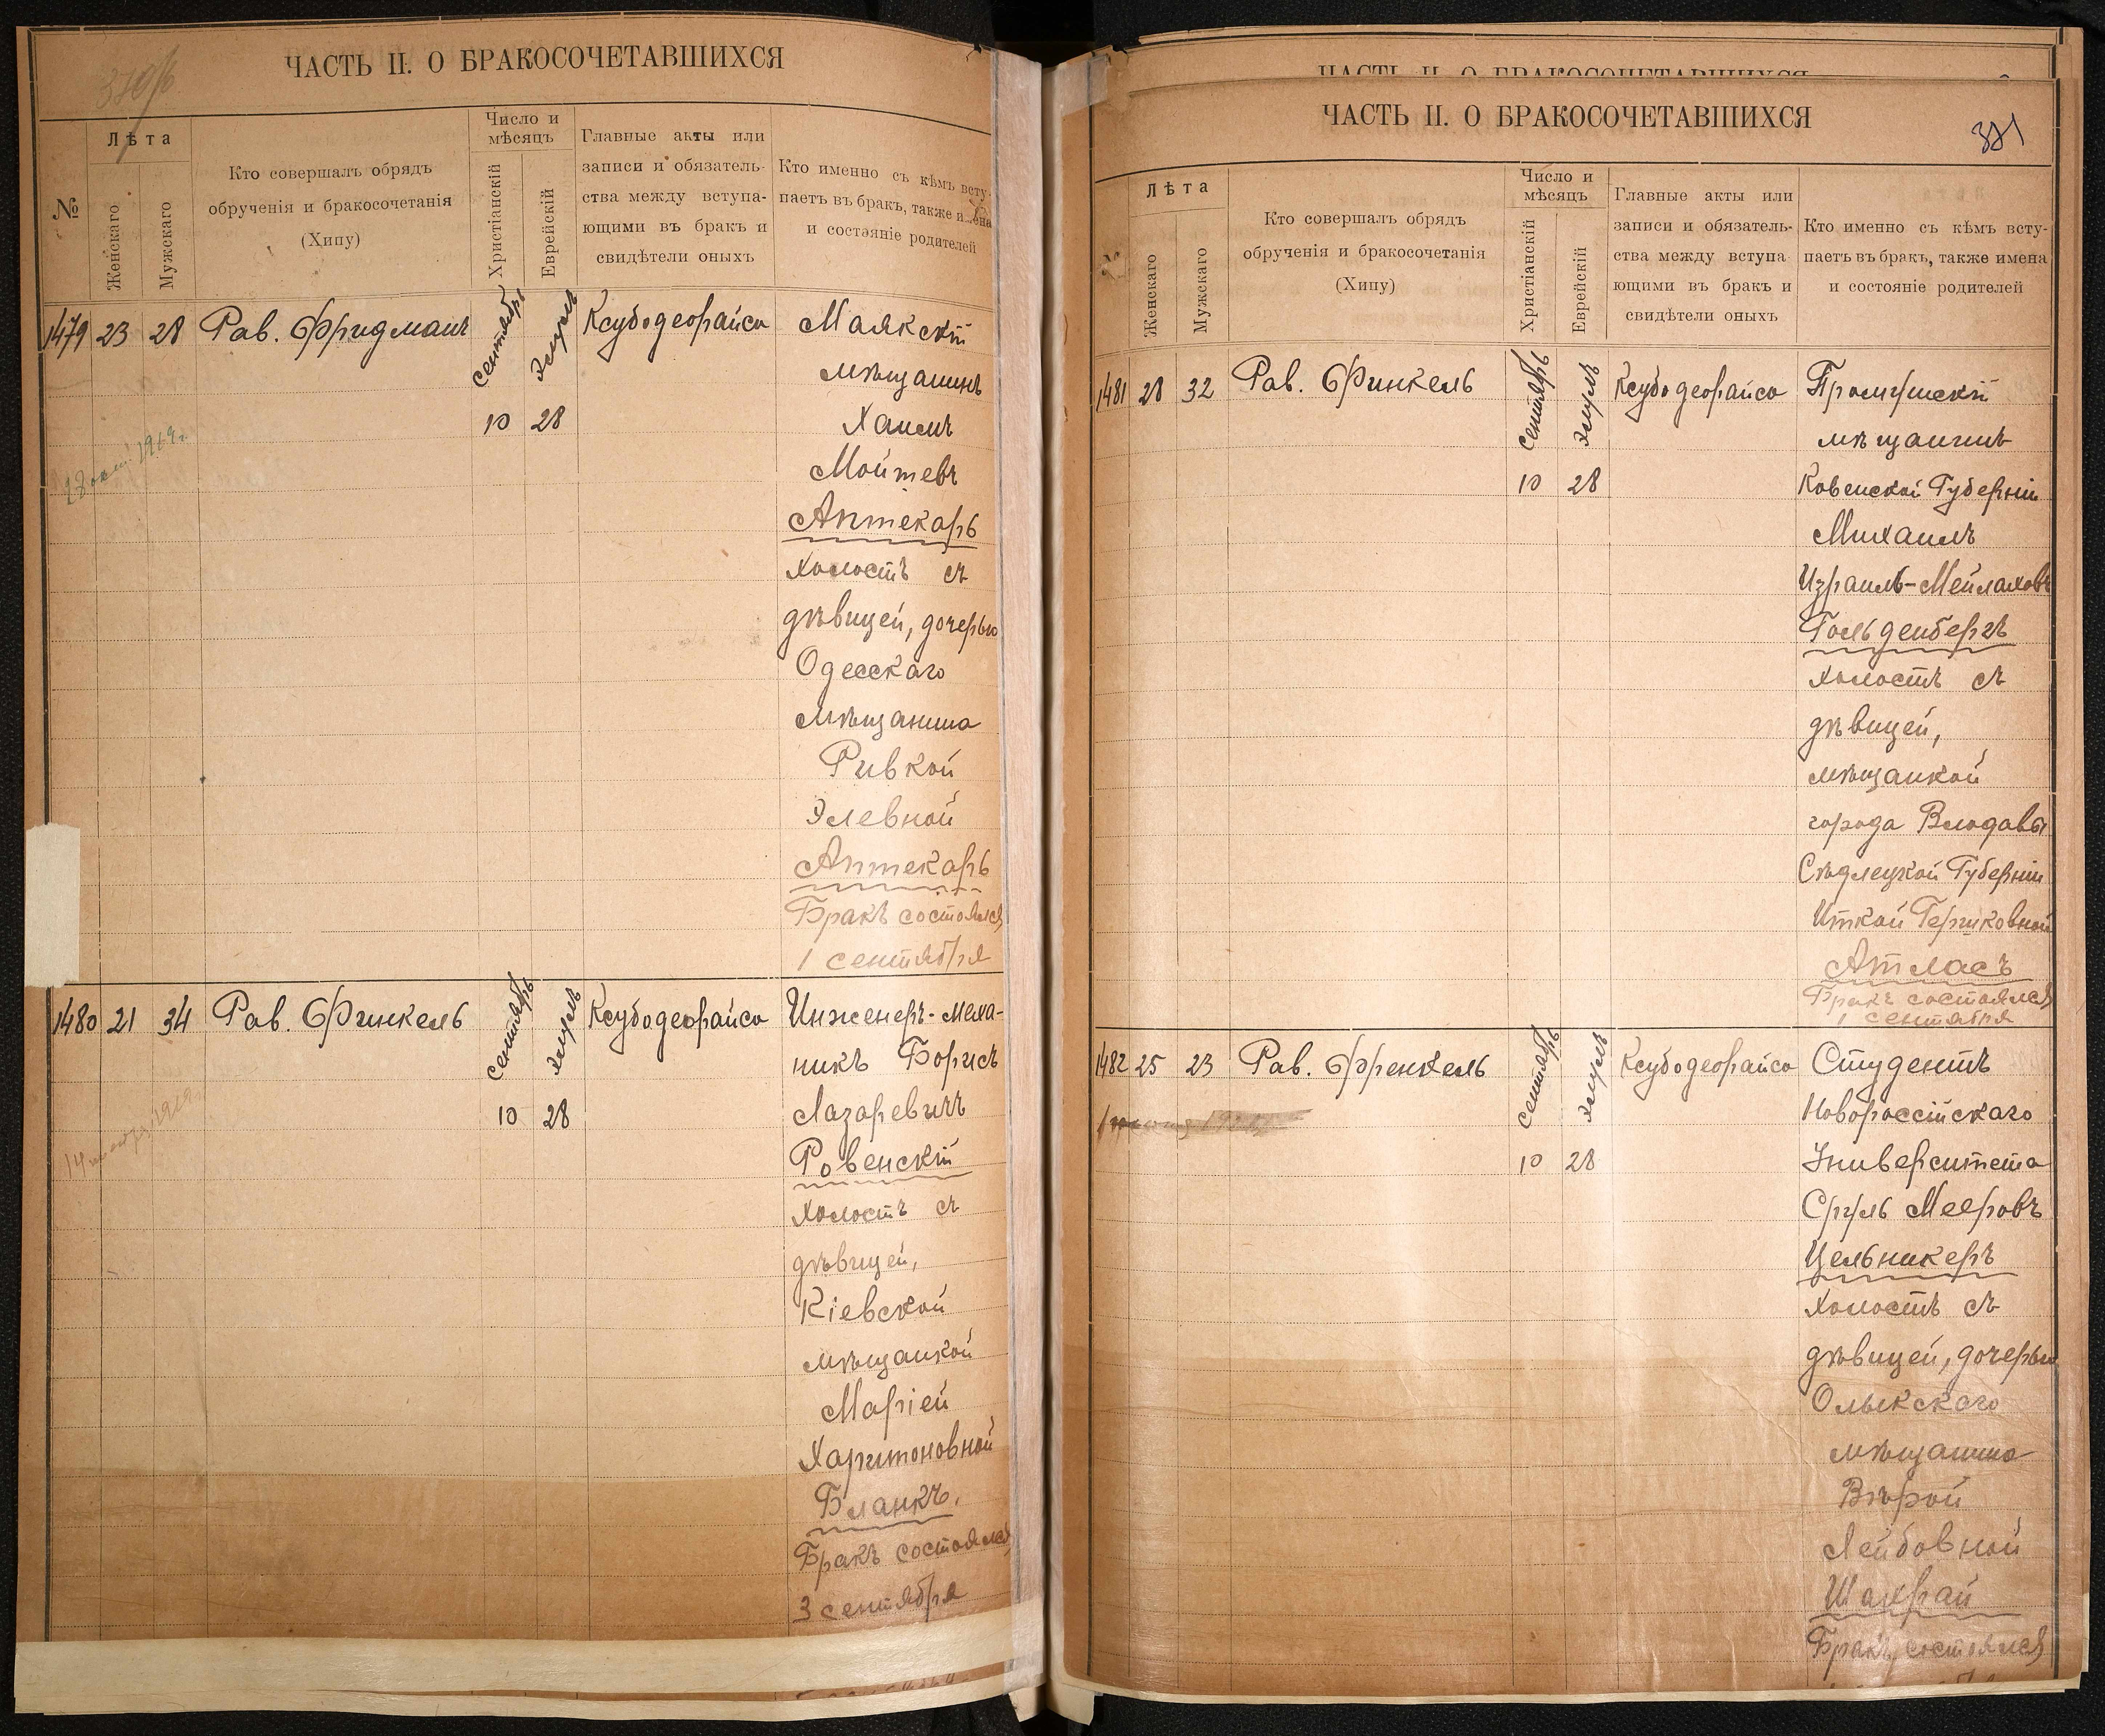 ЧАСТЬ II. О БРАКОСОЧЕТАВШИХСЯ
№
Лѣта
Женскаго
Мужскаго
Кто совершалъ обрядъ
обрученія и бракосочетанія
(Хипу)
Число и
мѣсяцъ
Христіанскій
Еврейскій
Главные акты или
записи и обязатель-
ства между вступа-
ющими въ бракъ и
свидѣтели оныхъ
Кто именно съ кѣмъ всту-
паетъ въ бракъ, также имена
и состояніе родителей
1479 23 28 Рав. Фридманъ сентябрь Элуль Ксубодеорайса Маякскій
мѣщанинъ
10 28 Хаимъ
Мойшевъ
Аптекарь
холостъ съ
дѣвицей, дочерью
Одесскаго
мѣщанина
Ривкой
Элевной
Аптекарь
Бракъ состоялся
1 сентября
1480 21 34 Рав. Финкель сентябрь Элуль Ксубодеорайса Инженеръ-меха-
никъ Борисъ
10 28 Лазаревичъ
Ровенскій
холостъ съ
дѣвицей,
Кіевской
мѣщанкой
Маріей
Харитоновной
Бланкъ.
Бракъ состоялся
3 сентября
ЧАСТЬ II. О БРАКОСОЧЕТАВШИХСЯ
ЧАСТЬ II. О БРАКОСОЧЕТАВШИХСЯ
381
№
Лѣта
Женскаго
Мужскаго
Кто совершалъ обрядъ
обрученія и бракосочетанія
(Хипу)
Число и
мѣсяцъ
Христіанскій
Еврейскій
Главные акты или
записи и обязатель-
ства между вступа
ющими въ бракъ и
свидѣтели оныхъ
Кто именно съ кѣмъ всту-
паетъ въ бракъ, также имена
и состояніе родителей
1481 28 32 Рав. Финкель сентябрь Элуль Ксубодеорайса
мѣщанинъ
10 28 Ковенской Губерніи
Михаилъ
Израиль-Мейлаховъ
Гольденбергъ
холостъ съ
дѣвицей,
мѣщанкой
города Влодавы
Сѣдлецкой Губерніи
Иткой Гершковной
Атласъ
Бракъ состоялся
1 сентября
1482 25 23 Рав. Френкель сентябрь Элуль Ксубодеорайса Студентъ
Новороссійскаго
10 28 Университета
Сруль Мееровъ
Цельникеръ
холостъ съ
дѣвицей, дочерью
Олыкскаго
мѣщанина
Вѣрой
Лейбовной
Шахрай
Бракъ состоялся